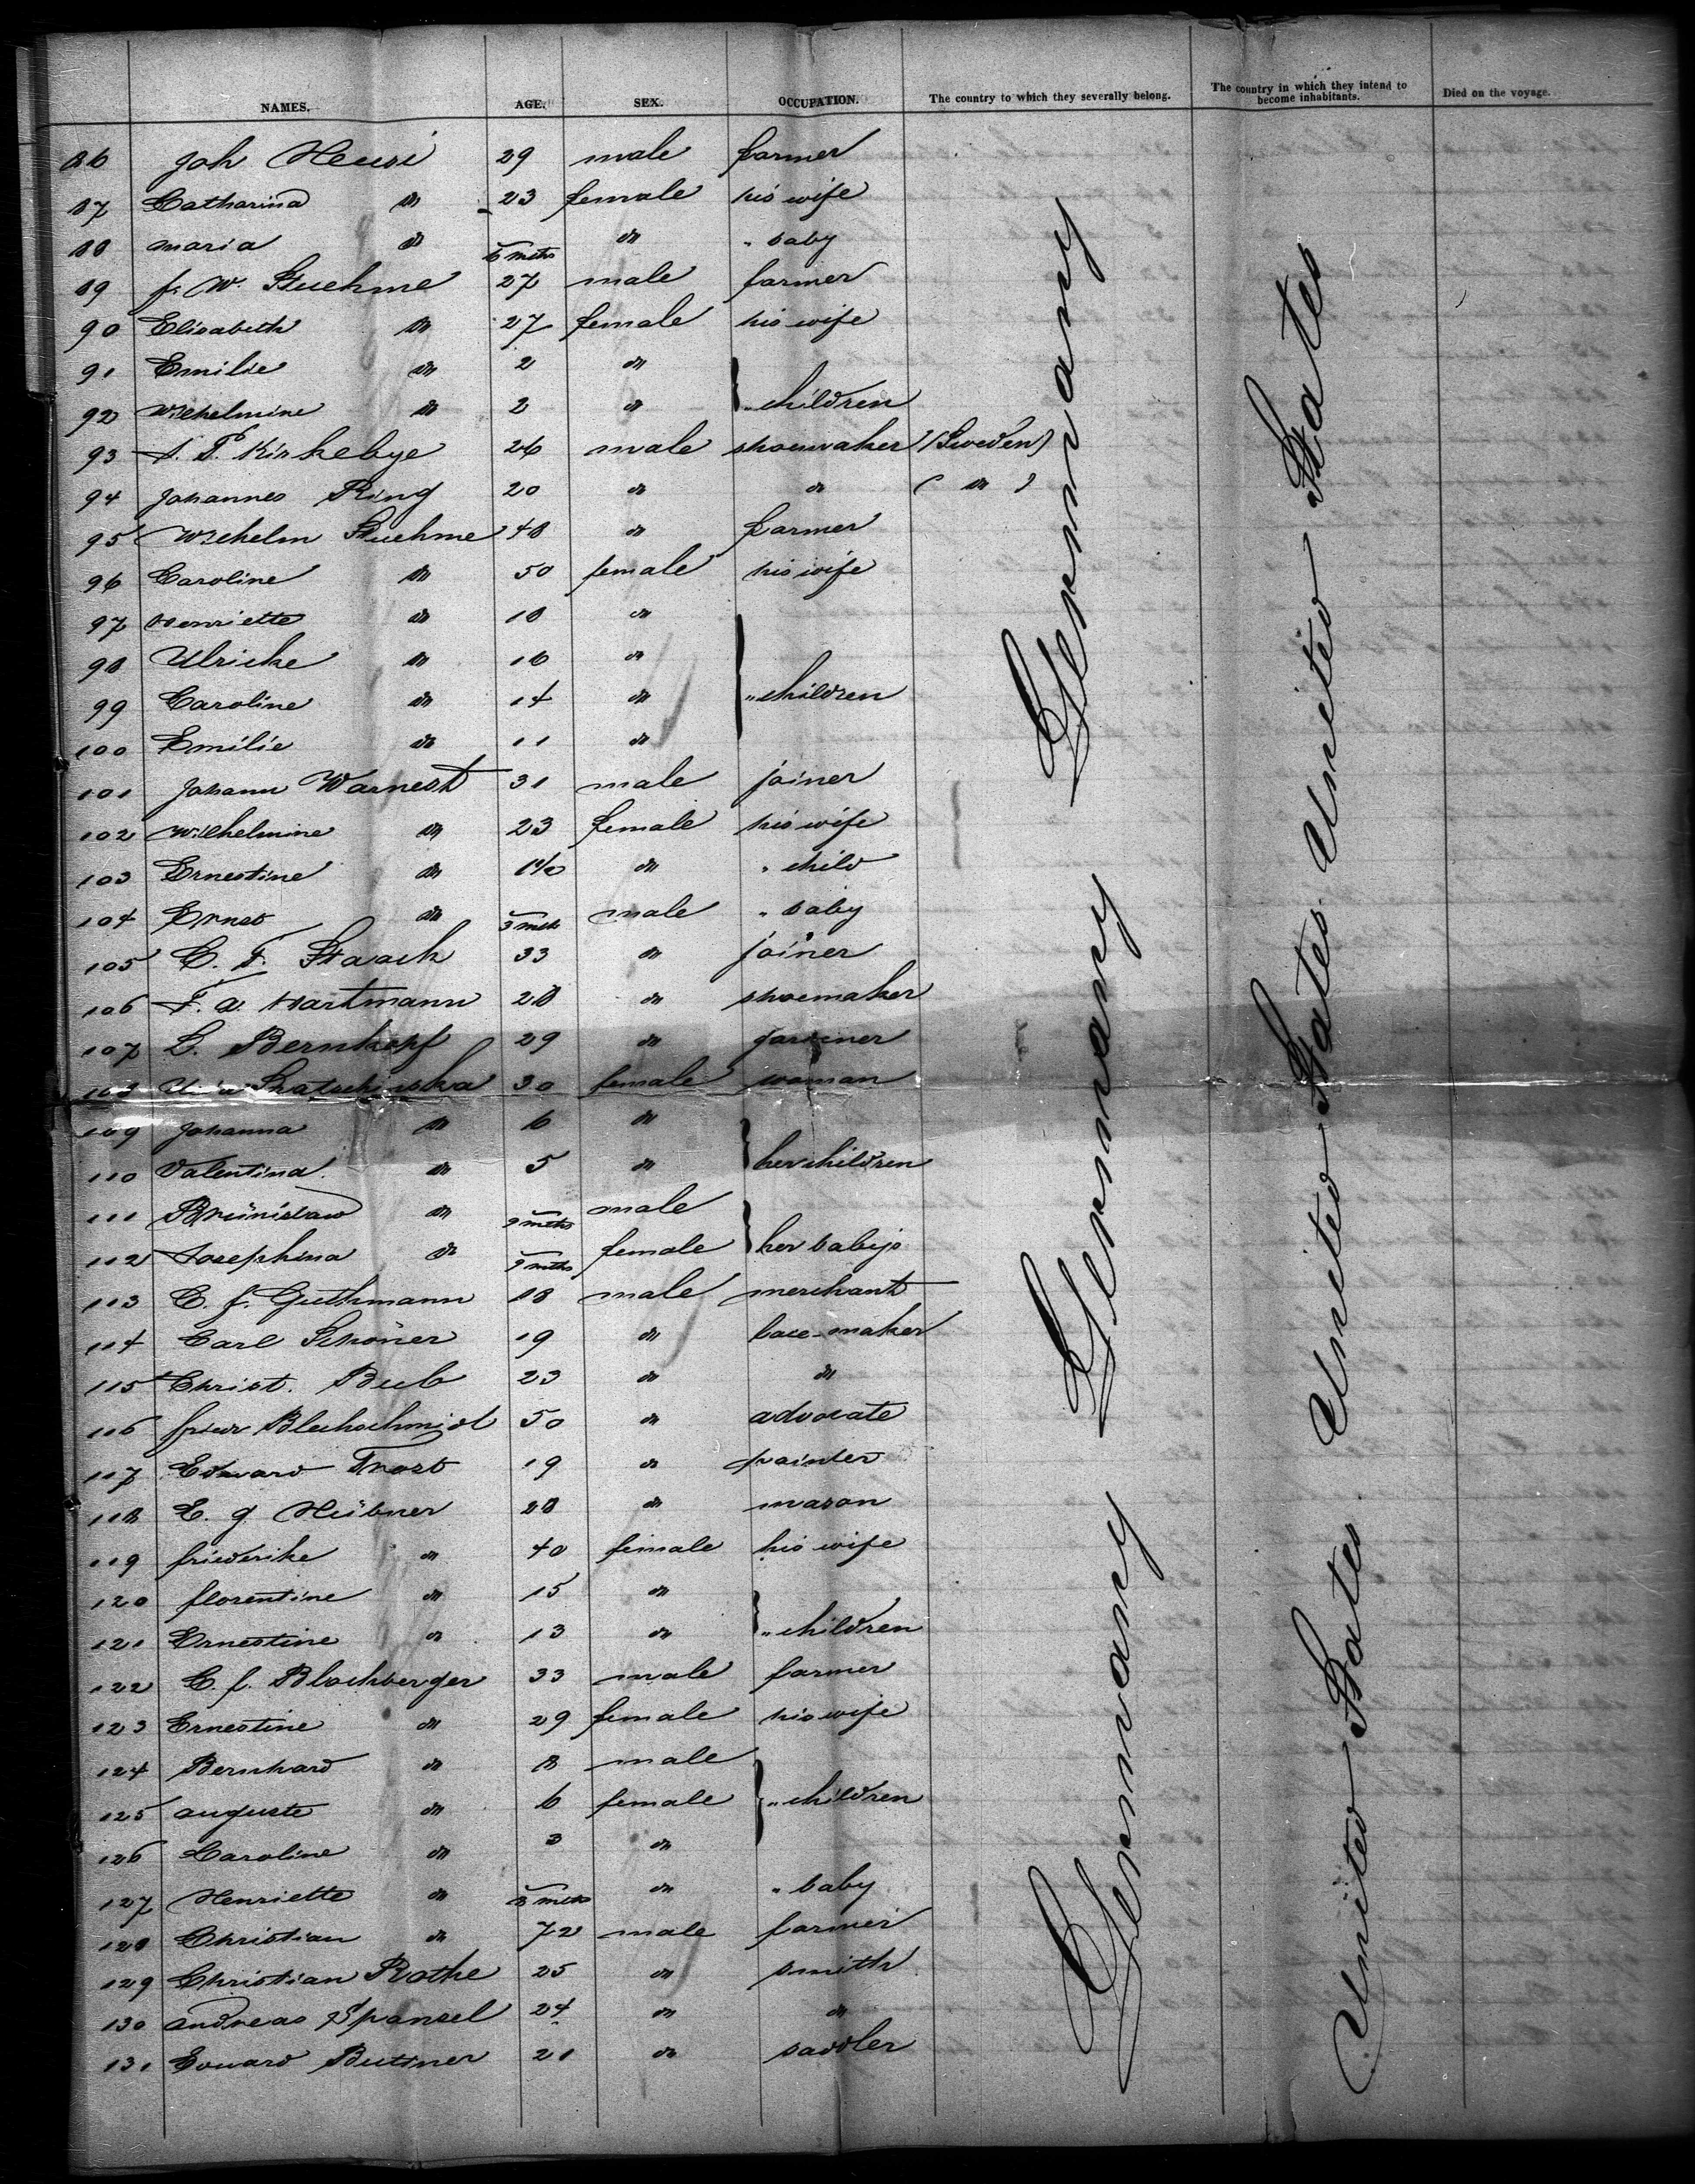 NAMES. AGE. SEX. OCCUPATION. The country to which they severally belong. The country in which they intend to become inhabitants. Died on the voyage.
86 Joh Heusi 29 male farmer
87 Catharina do 23 female his wife
88 Maria do 6 mths do " baby
89 f. W. Stuehme 27 male farmer
90 Elisabeth do 27 female his wife
91 Emilie do 2 do
92 Wilhelmine do 2 do " children
93 A. P. Kirkebye 26 male shoemaker (Sweden)
94 Johannes Ring 20 do do ( do )
95 Wilhelm Stuehme 48 do farmer
96 Caroline do 50 female his wife
97 Henriette do 18 do
98 Ulricke do 16 do
99 Caroline do 14 do " children
100 Emilie do 11 do
101 Johann Warnest 31 male joiner
102 Wilhelmine do 23 female his wife
103 Ernestine do 1 1/2 do " child
104 Ernst do 3 mths male " baby
105 C. F. Staack 33 do joiner
106 F. A. Hartmann 28 do shoemaker
107 L. Bernkopf 29 do gardiner
108 30 female woman
109 Johanna do 6 do
110 Valentina do 5 do her children
111 Brünislaw do 9 mths male
112 Josephina do 9 mths female her babys
113 C. f. Guthmann 18 male merchant
114 Carl Schöner 19 do lace-maker
115 Christ. Bub 23 do do
116 friedr Blechschmidt 50 do advocate
117 Edward Trost 19 do painter
118 E. g. Hübner 28 do mason
119 friederike do 40 female his wife
120 florentine do 15 do
121 Ernestine do 13 do " children
122 C. f. Blochberger 33 male farmer
123 Ernestine do 29 female his wife
124 Bernhard do 8 male
125 Auguste do 6 female " children
126 Caroline do 3 do
127 Henriette do 8 mths do " baby
128 Christian do 72 male farmer
129 Christian Rothe 25 do smith
130 Andreas Spansel 24 do do
131 Edward Buttner 21 do saddler
Germany Germany Germany
United States United States United States